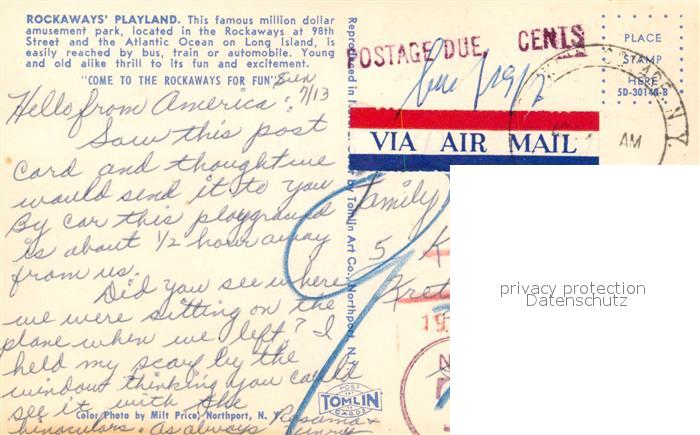 ROCKAWAYS' PLAYLAND. This famous million dollar
amusement park, located in the Rockaways at 98th
Street and the Atlantic Ocean on Long Island, is
easily reached by bus, train or automobile. Young
and old alike thrill to its fun and excitement.
"COME TO THE ROCKAWAYS FOR FUN"
Sun
7/13
Hello from America:
Saw this post
card and thought we
would send it to you
By car this playground
is about 1/2 hour away
from us.
Did you see where
we were sitting on the
plane when we left? I
held my scarf by the
window thinking you could
see it with the
binoculars. As always
Color Photo by Milt Price, Northport, N. Y.
Reproduced in
by Tomlin Art Co., Northport, N.Y.
POST
TOMLIN
CARDS
POSTAGE DUE CENTS
VIA AIR MAIL
PLACE
STAMP
HERE
SD-30140-B
N.Y.
AM
Family
5 K
19
privacy protection
Datenschutz